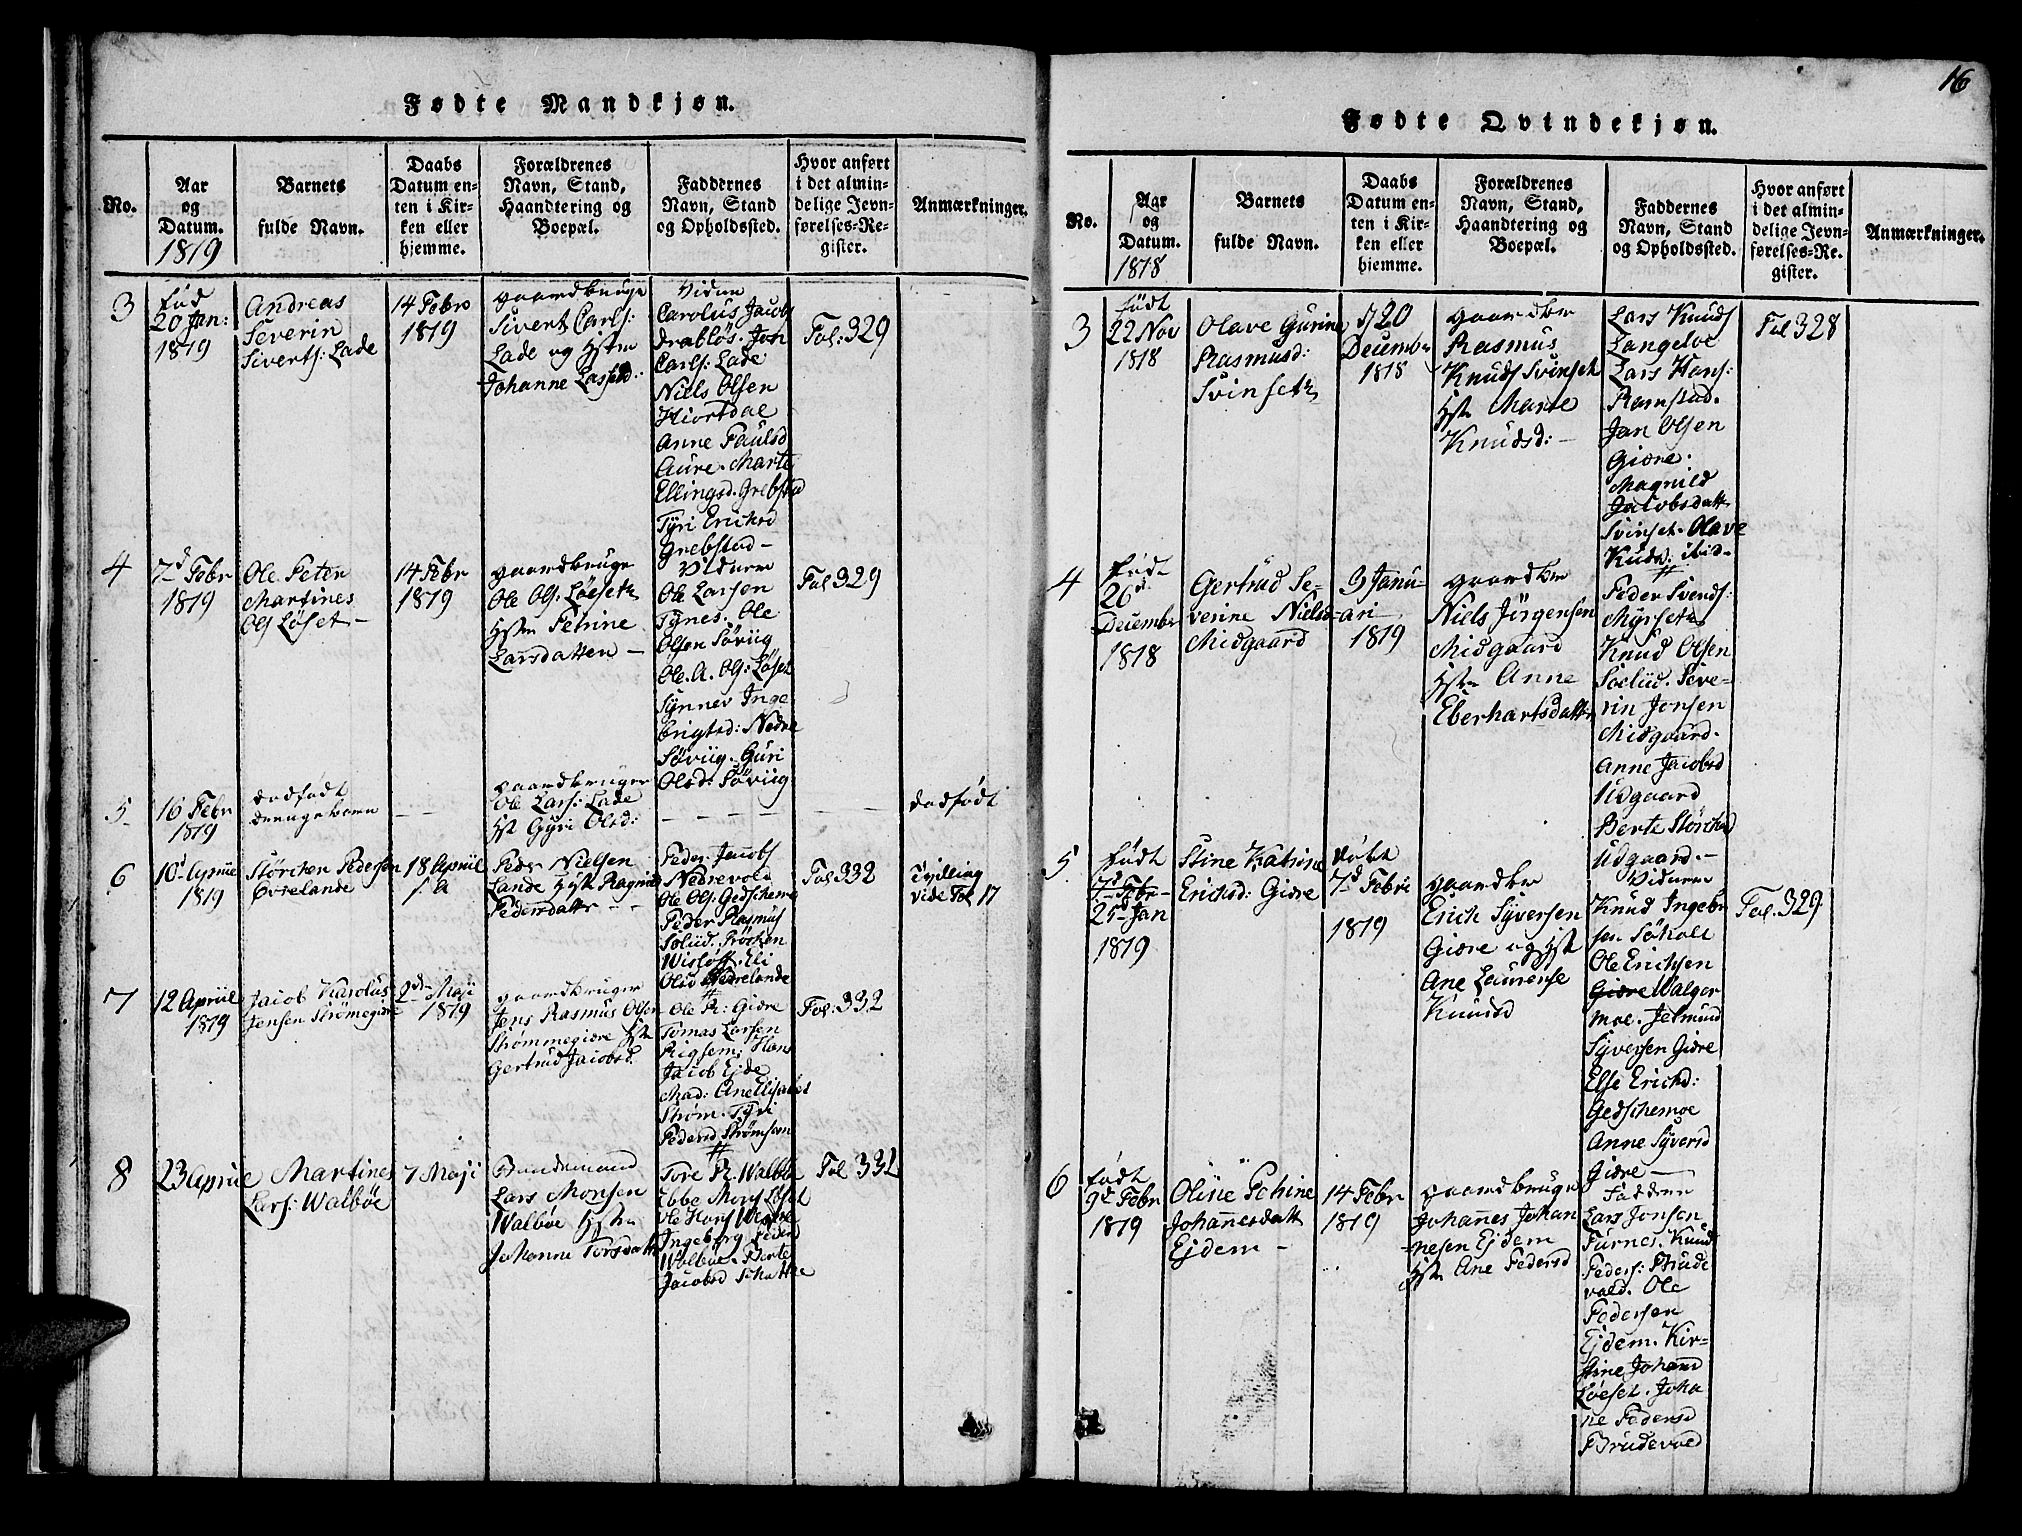 Fødte Mandkjøn.
No.
Aar
og
Datum.
1819
Barnets
fulde Navn.
Daabs
Datum en-
ten i Kir-
ken eller
hjemme.
Forældrenes
Navn, Stand,
Haandtering og
Boepæl.
Faddernes
Navn, Stand
og Opholdssted.
Hvor anført
i det almin-
delige Jevn-
førelses-Re-
gister.
Anmærkninger.
3
født
20 Jan:
1819
Andreas
Severin
Siverts: Lade
14 Febr
1819
gaardbruge
Sivert Carls:
Lade og Hstr
Johanne Lassed:
Vidne
Carolus Jacobs
drabløs. Jon
Carls: Lade
Niels Olsen
Hiortdal
Anne Paulsd
Aure. Marte
Ellingsd. Grebstad
Tyri Erichsd
Grebstad
Fol: 329
4
7d Febr
1819
Ole Peter
Martines
Ols Løset
14 Febr
1819
gaardbruge
Ole Ols. Løeset
Hstr Petrine
Larsdatter
Vidnere
Ole Larsen
Tynes. Ole
Olsen Søviig
Ole. A. Ols: Løset
Synnev Inge
brigtsd: Nedre
Søviig. Guri
Olsd: Søviig
Fol 329
5
16 Febr
1819
dødfødt
drengebarn
gaardbruger
Ole Lars: Lade
Hst Gyri Olsd:
dødfødt
6
10d April
1819
Størcker Pedersen
Øvrelande
18 April
Peder Nielsen
Lande Hst Ragnild
Pedersdatt
Peder Jacobs
Nedrevold
Ole Ols. Gedschemo
Peder Rasmus
Solud.
Olsd Nedrelande
Fol 332
Tvilling
vide Fol 17
7
12 April
1819
Jacob Karolus
Jensen Strømegiære
2d Maji
1819
gaardbruger
Jens Rasmus Olsen
Strømmegiære Hst
Gertrud Jacobsd
Ole R: Giære
Tomas Larsen
Hans
Jacob Ejde
Mad: Ane Elisabet
Strøm. Tyri
Pedersd Strømhan
Fol. 332
8
23 April
Martines
Lars: Walbøe
7 Maji
Bondemand
Lars Monsen
Walbøe Hstr
Johanne Torsdatt
Tore R. Walbøe
Ebbe Mons Løset
Ole Hans
Ingeborg Peder
Walbøe. Berte
Jacobsd
Fol 332
16
Fødte Qvindekjøn.
No.
Aar
og
Datum.
1818
Barnets
fulde Navn.
Daabs
Datum en-
ten i Kir-
ken eller
hjemme.
Forældrenes
Navn, Stand,
Haandtering og
Boepæl.
Faddernes
Navn, Stand
og Opholdssted.
Hvor anført
i det almin-
delige Jevn-
førelses-Re-
gister.
Anmærkninger.
3
født
22 Nov
1818
Olave Gurine
Rasmusd:
Svinset
20
Decembr
1818
gaardbr
Rasmus
Knuds Svinset
Hstr Marte
Knudsd:
Lars Knuds
Langeloe
Lars Hans:
Ramstad.
Jan Olsen
Giære.
Magnild
Jacobsdatt
Svinset. Olave
Knudsd: ibid
Fol 328
4
født
26d
Decembr
1818
Gertrud Se-
verine Nielsd
Midgaard
3 Janu-
ari
1819
gaardbr
Niels Jørgensen
Midgaard
Hstr Anne
Eberhartsdatt
Peder Svends:
Myrset
Knud Olsen
Soelud. Seve-
rin Jonsen
Midgaard.
Anne Jacobsd
Udgaard
Berte Størchsd
Udgaard.
5
født
7d Febr
25d Jan
1819
Stine Katrine
Erichsd: Giære
døbt
7d Febr
1819
gaardbr
Erich Syversen
Giære og Hst
Ane Laurense
Knudsd
Vidnere
Knud Ingebr
sen Søholt
Ole Erichsen
Giære Walger
moe. Jetmund
Syversen Giære
Else Erichsd:
Gedschemoe
Anne Syversd
Giære
Fol. 329
6
født
9d Febr
1819
Oline Pehine
Johannesdatt
Ejdem
14 Febr
1819
gaardbruge
Johannes Johan
nesen Ejdem
Hstr Ane Pedersd
Faddere
Lars Jonsen
Furnes. Knud
Peders: Brude
vold. Ole
Pedersen
Ejdem. Kir-
stine Johand
Løeset. Joha
ne Pedersd
Brudevold